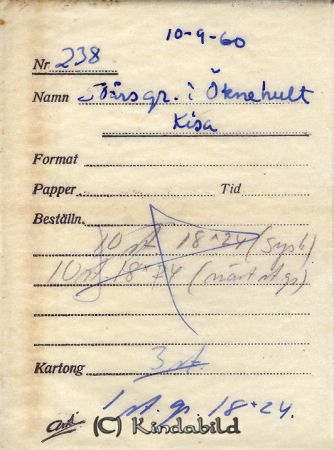 10-9-60
Nr 238
Namn Törsgr. i Öknehult
Kisa
Format
Papper Tid
Beställn.
10 st. 18*24 (sysk)
10 st 18*24 (närt st gr)
Kartong 3 st.
1 st. gr. 18*24.
(C) Kindabild